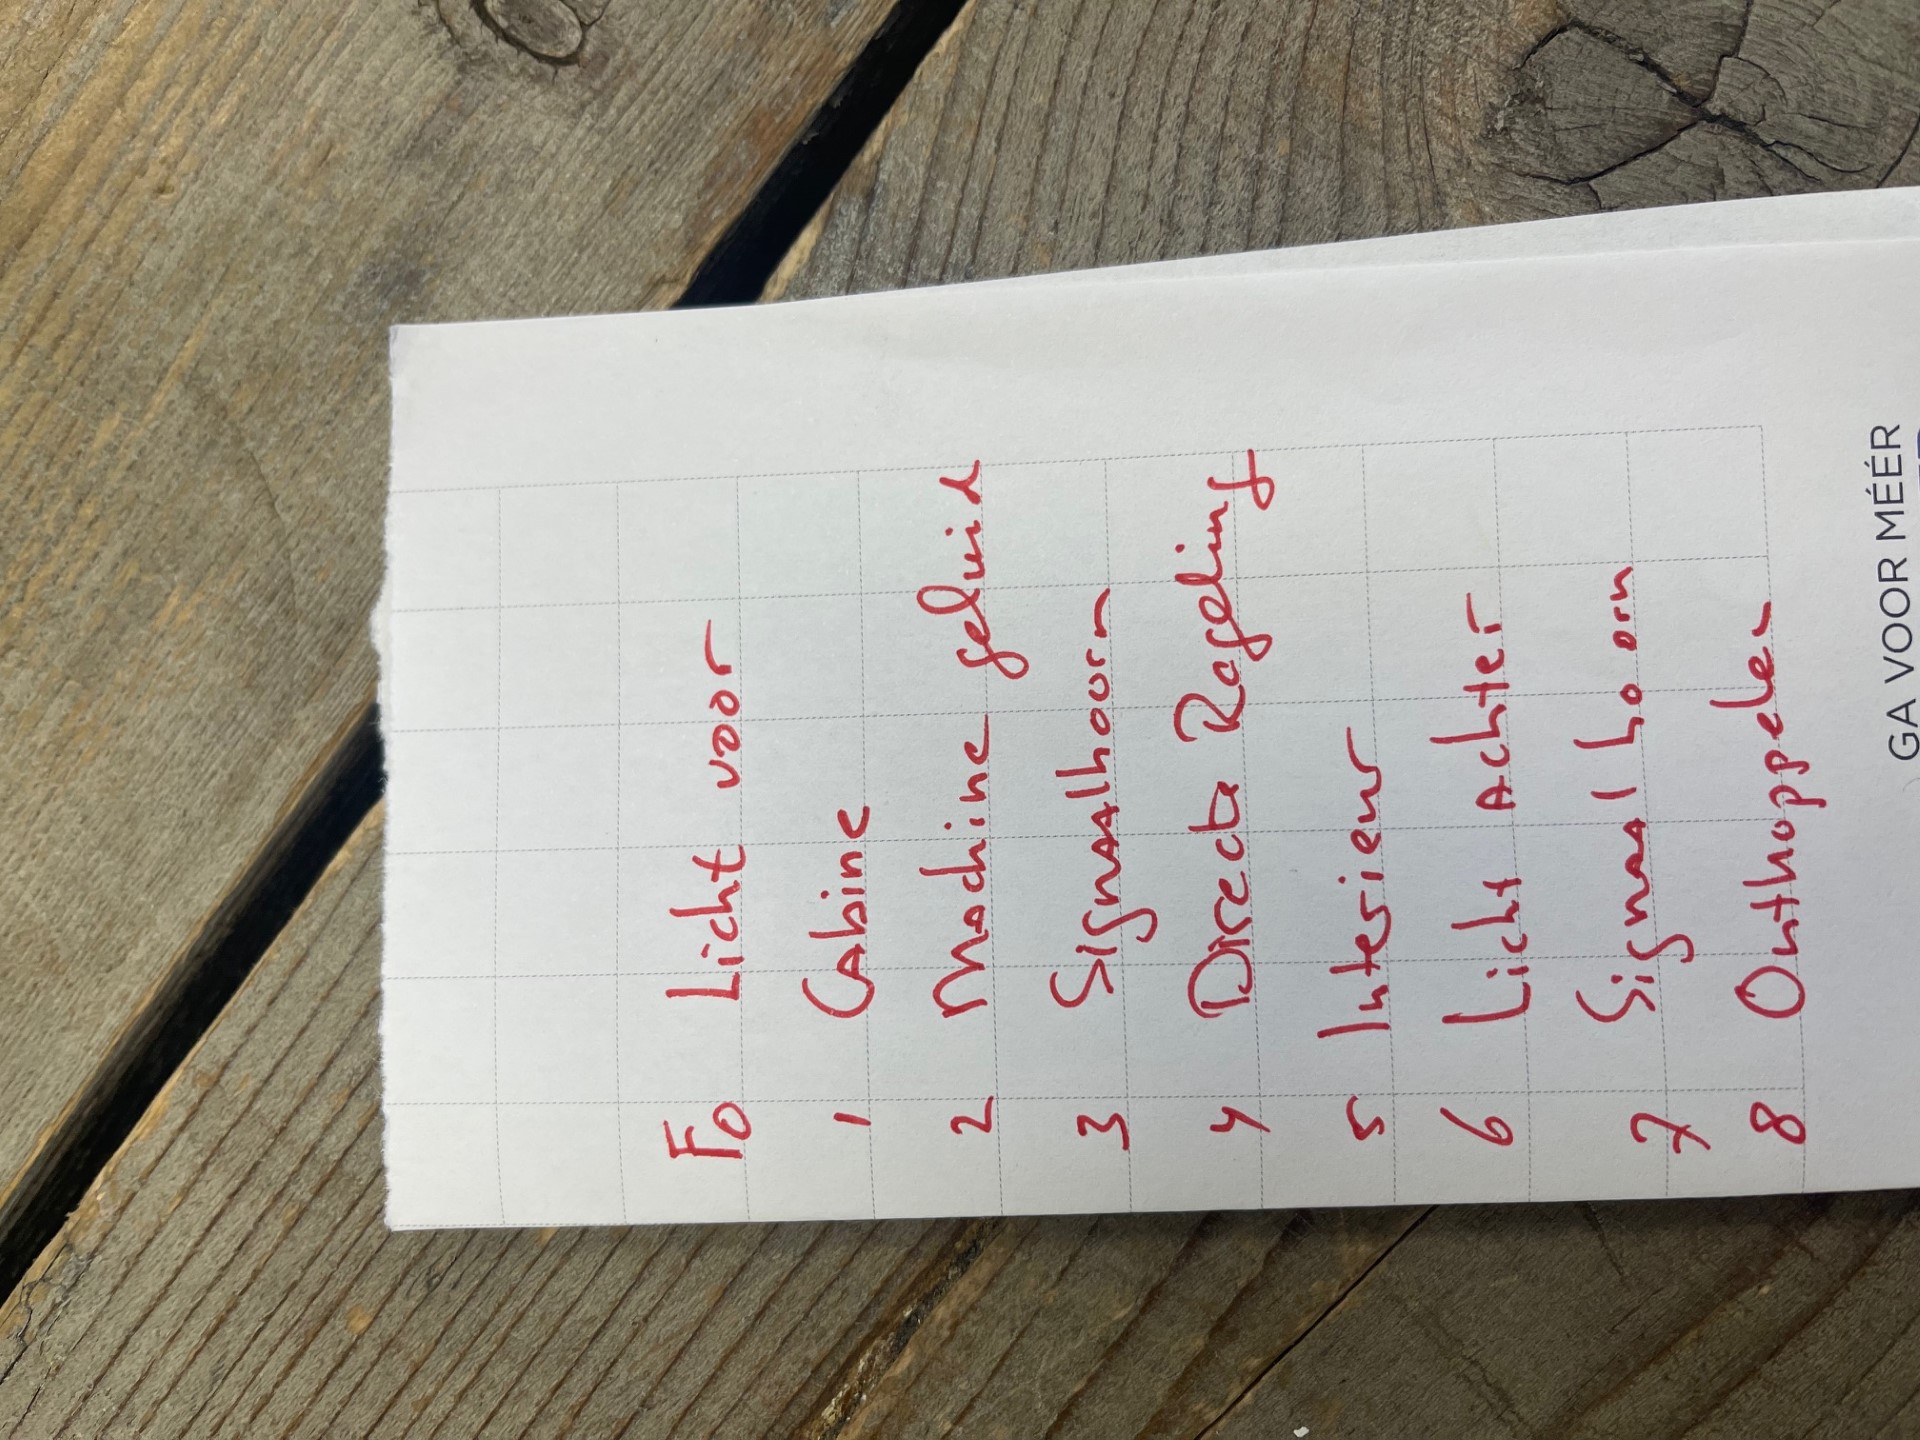 F0 Licht voor
1 Cabine
2 Machine geluid
3 Signaalhoorn
4 Directe Regeling
5 Interieur
6 Licht Achter
7 Signaalhoorn
8 Onthoppelen
GA VOOR MÉÉR